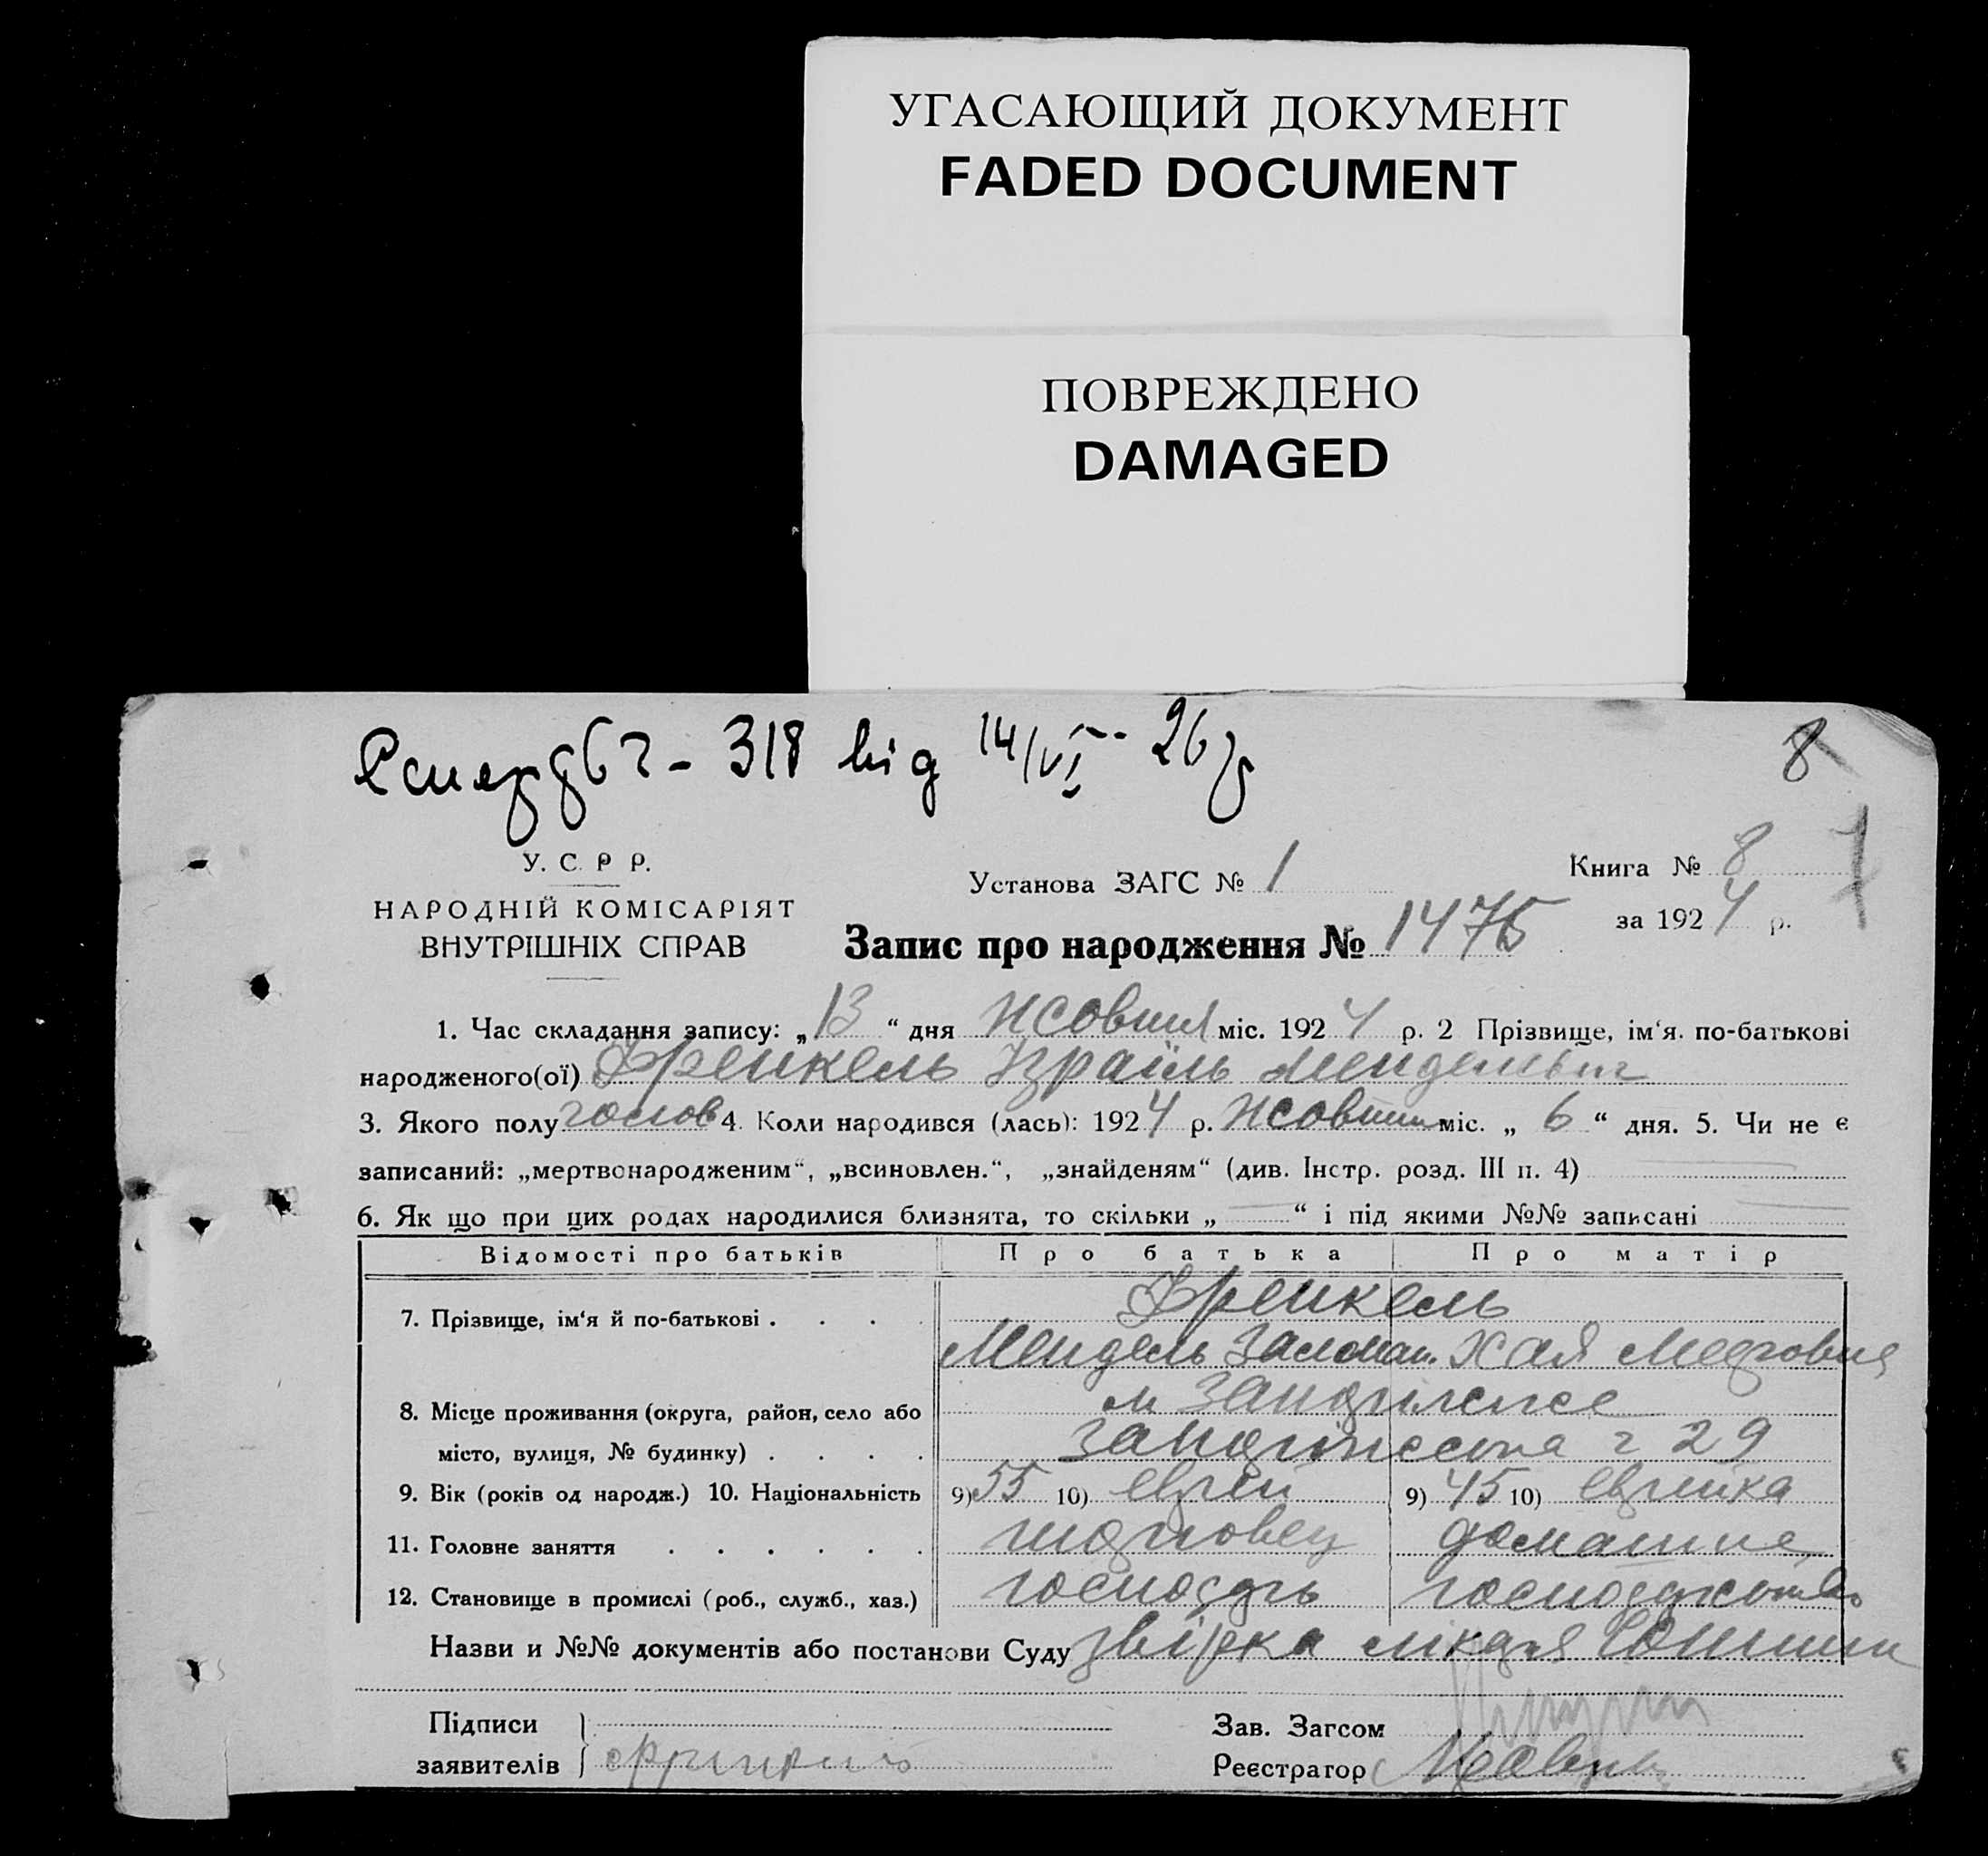 УГАСАЮЩИЙ ДОКУМЕНТ
FADED DOCUMENT
ПОВРЕЖДЕНО
DAMAGED
318 від 14/VI - 26 р
8
У. С. Р. Р.
НАРОДНІЙ КОМІСАРІЯТ
ВНУТРІШНІХ СПРАВ
Установа ЗАГС № 1
Книга № 8
за 1924 р.
Запис про народження № 1475
1. Час складання запису: „13“ дня жовтня міс. 1924 р. 2 Прізвище, ім‘я. по-батькові
народженого(ої) Френкель Ізраїль Мендельов
3. Якого полу чолов 4. Коли народився (лась): 1924 р. жовтня міс. „6“ дня. 5. Чи не є
записаний: „мертвонародженим“, „всиновлен.“, „знайденям“ (див. Інстр. розд. III п. 4)
6. Як що при цих родах народилися близнята, то скільки „ — “ і під якими №№ записані
Відомості про батьків Про батька Про матір
7. Прізвище, ім‘я й по-батькові . . . . Френкель
Мендель Залман. Хая
8. Місце проживання (округа, район, село або м
місто, вулиця, № будинку) . . . . 29
9. Вік (років од народж.) 10. Національність 9) 55 10) еврей 9) 45 10) еврейка
11. Головне заняття . . . . . . домашнє
12. Становище в промислі (роб., служб., хаз.) господарь господарство
Назви и №№ документів або постанови Суду
Підписи
заявителів
Зав. Загсом
Реєстратор